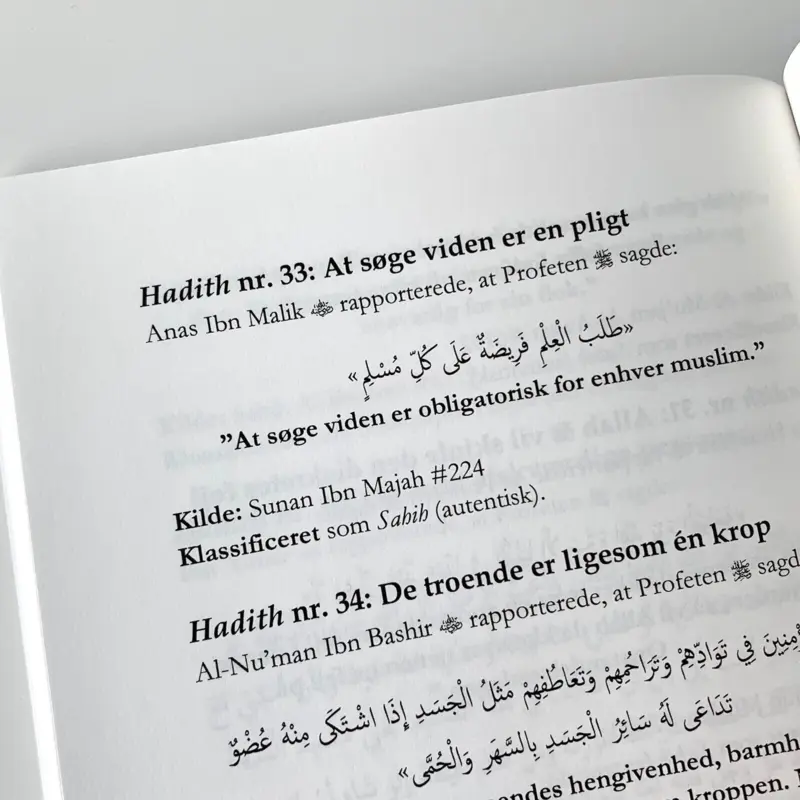 Hadith nr. 33: At søge viden er en pligt
Anas Ibn Malik ﷺ rapporterede, at Profeten ﷺ sagde:
«طَلَبُ الْعِلْمِ فَرِيضَةٌ عَلَى كُلِّ مُسْلِمٍ»
”At søge viden er obligatorisk for enhver muslim.”
Kilde: Sunan Ibn Majah #224
Klassificeret som Sahih (autentisk).
Hadith nr. 34: De troende er ligesom én krop
Al-Nu’man Ibn Bashir rapporterede, at Profeten ﷺ sagd
فِي تَوَادِّهِمْ وَتَرَاحُمِهِمْ وَتَعَاطُفِهِمْ مَثَلُ الْجَسَدِ إِذَا اشْتَكَى مِنْهُ عُضْوٌ
تَدَاعَى لَهُ سَائِرُ الْجَسَدِ بِالسَّهَرِ وَالْحُمَّى»
hengivenhed, barmh
kroppen.